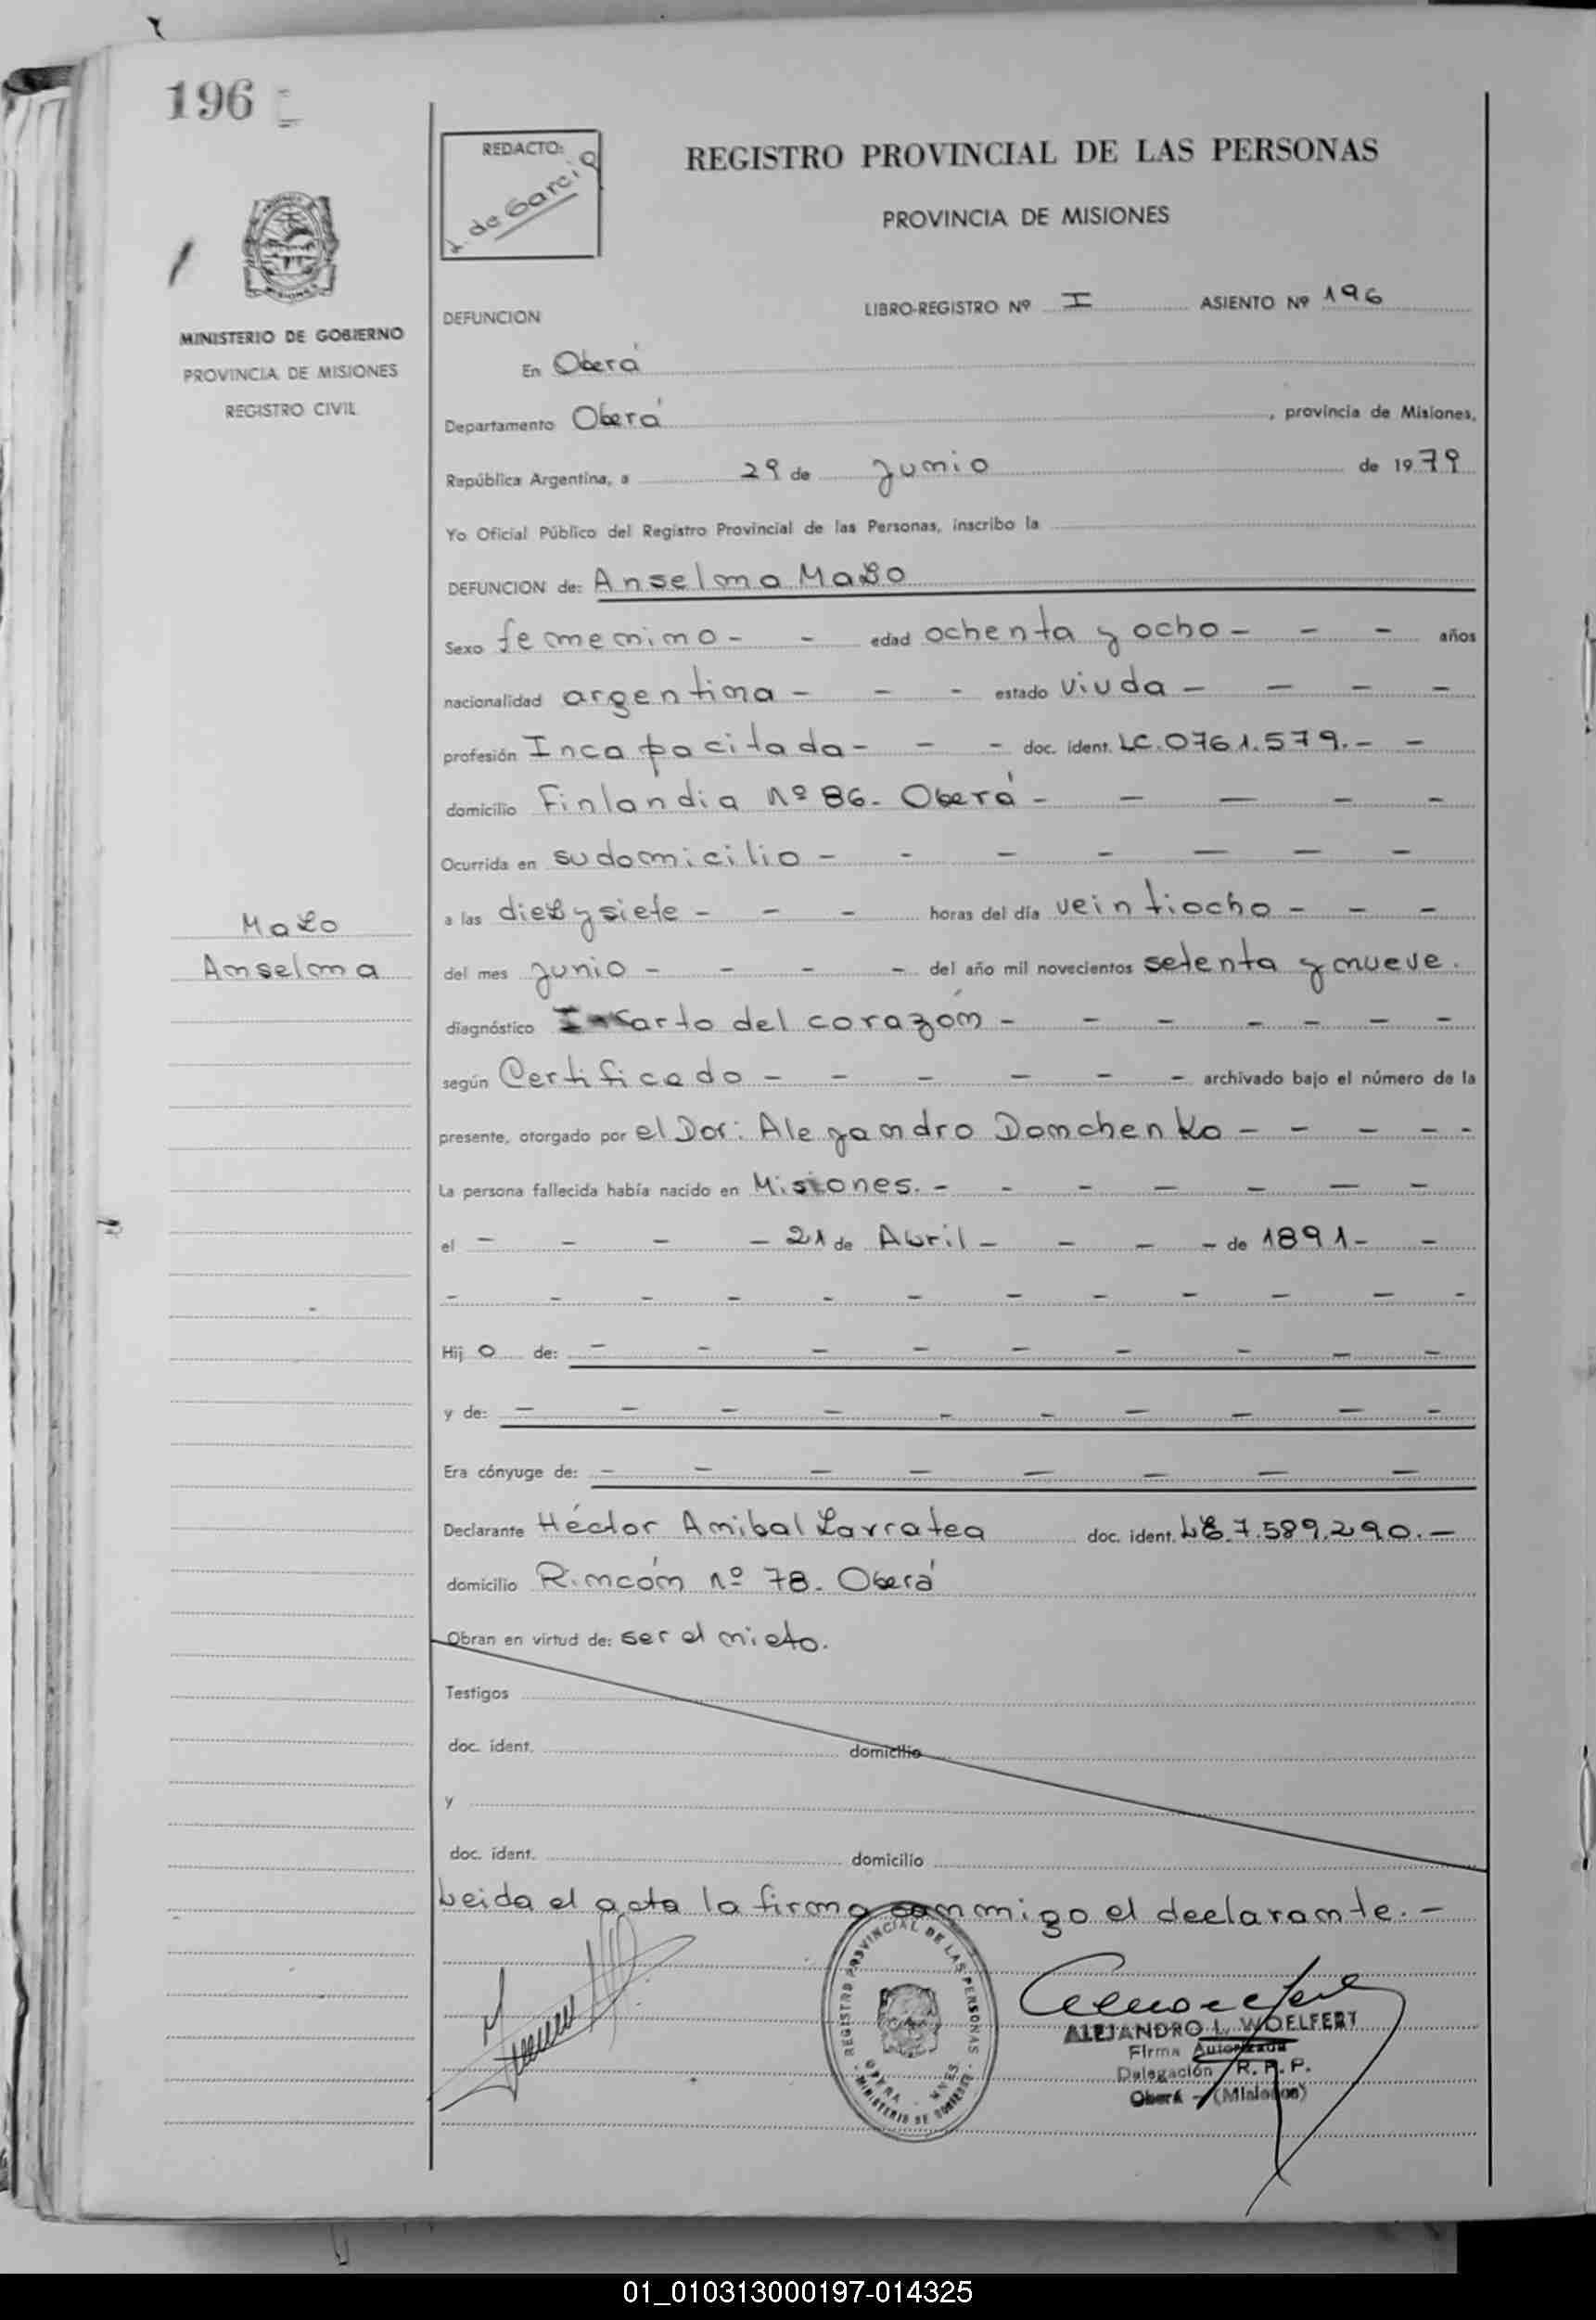 196
REDACTO:
de Garcia
REGISTRO PROVINCIAL DE LAS PERSONAS
PROVINCIA DE MISIONES
MINISTERIO DE GOBIERNO
PROVINCIA DE MISIONES
REGISTRO CIVIL
DEFUNCION LIBRO-REGISTRO Nº I ASIENTO Nº 196
En Oberá
Departamento Oberá, provincia de Misiones,
República Argentina, a 29 de Junio de 1979
Yo Oficial Público del Registro Provincial de las Personas, inscribo la
DEFUNCION de: Anselma Mazo
Sexo femenino - - edad ochenta y ocho - - - años
nacionalidad argentina - - - estado viuda - - - -
profesión Incapacitada - - - doc. ident. LC. 0761.579. - -
domicilio Finlandia nº 86 - Oberá - - - - -
Ocurrida en su domicilio - - - - - - -
a las diez y siete - - - horas del día veintiocho - - -
Mazo
Anselma
del mes Junio - - - - del año mil novecientos setenta y nueve.
diagnóstico Infarto del corazón - - - - - - -
según Certificado - - - - - - archivado bajo el número de la
presente, otorgado por el Dor: Alejandro Domchenko - - - - -
La persona fallecida había nacido en Misiones. - - - - - - -
el - - - - 21 de Abril - - - - de 1891 - -
- - - - - - - - - - - -
Hij o de: - - - - - - - - -
y de: - - - - - - - - - -
Era cónyuge de: - - - - - - - -
Declarante Héctor Anibal Larratea doc. ident. LE. 7.589.290. -
domicilio Rincón nº 78. Oberá
Obran en virtud de: ser el nieto.
Testigos
doc. ident. domicilio
y
doc. ident. domicilio
Leida el acta la firma conmigo el declarante. -
REGISTRO PROVINCIAL DE LAS PERSONAS
OBERA - MNES
MINISTERIO DE GOBIERNO
ALEJANDRO L. WOELFERT
Firma Autorizada
Delegación R. P. P.
Oberá - (Misiones)
01_010313000197-014325